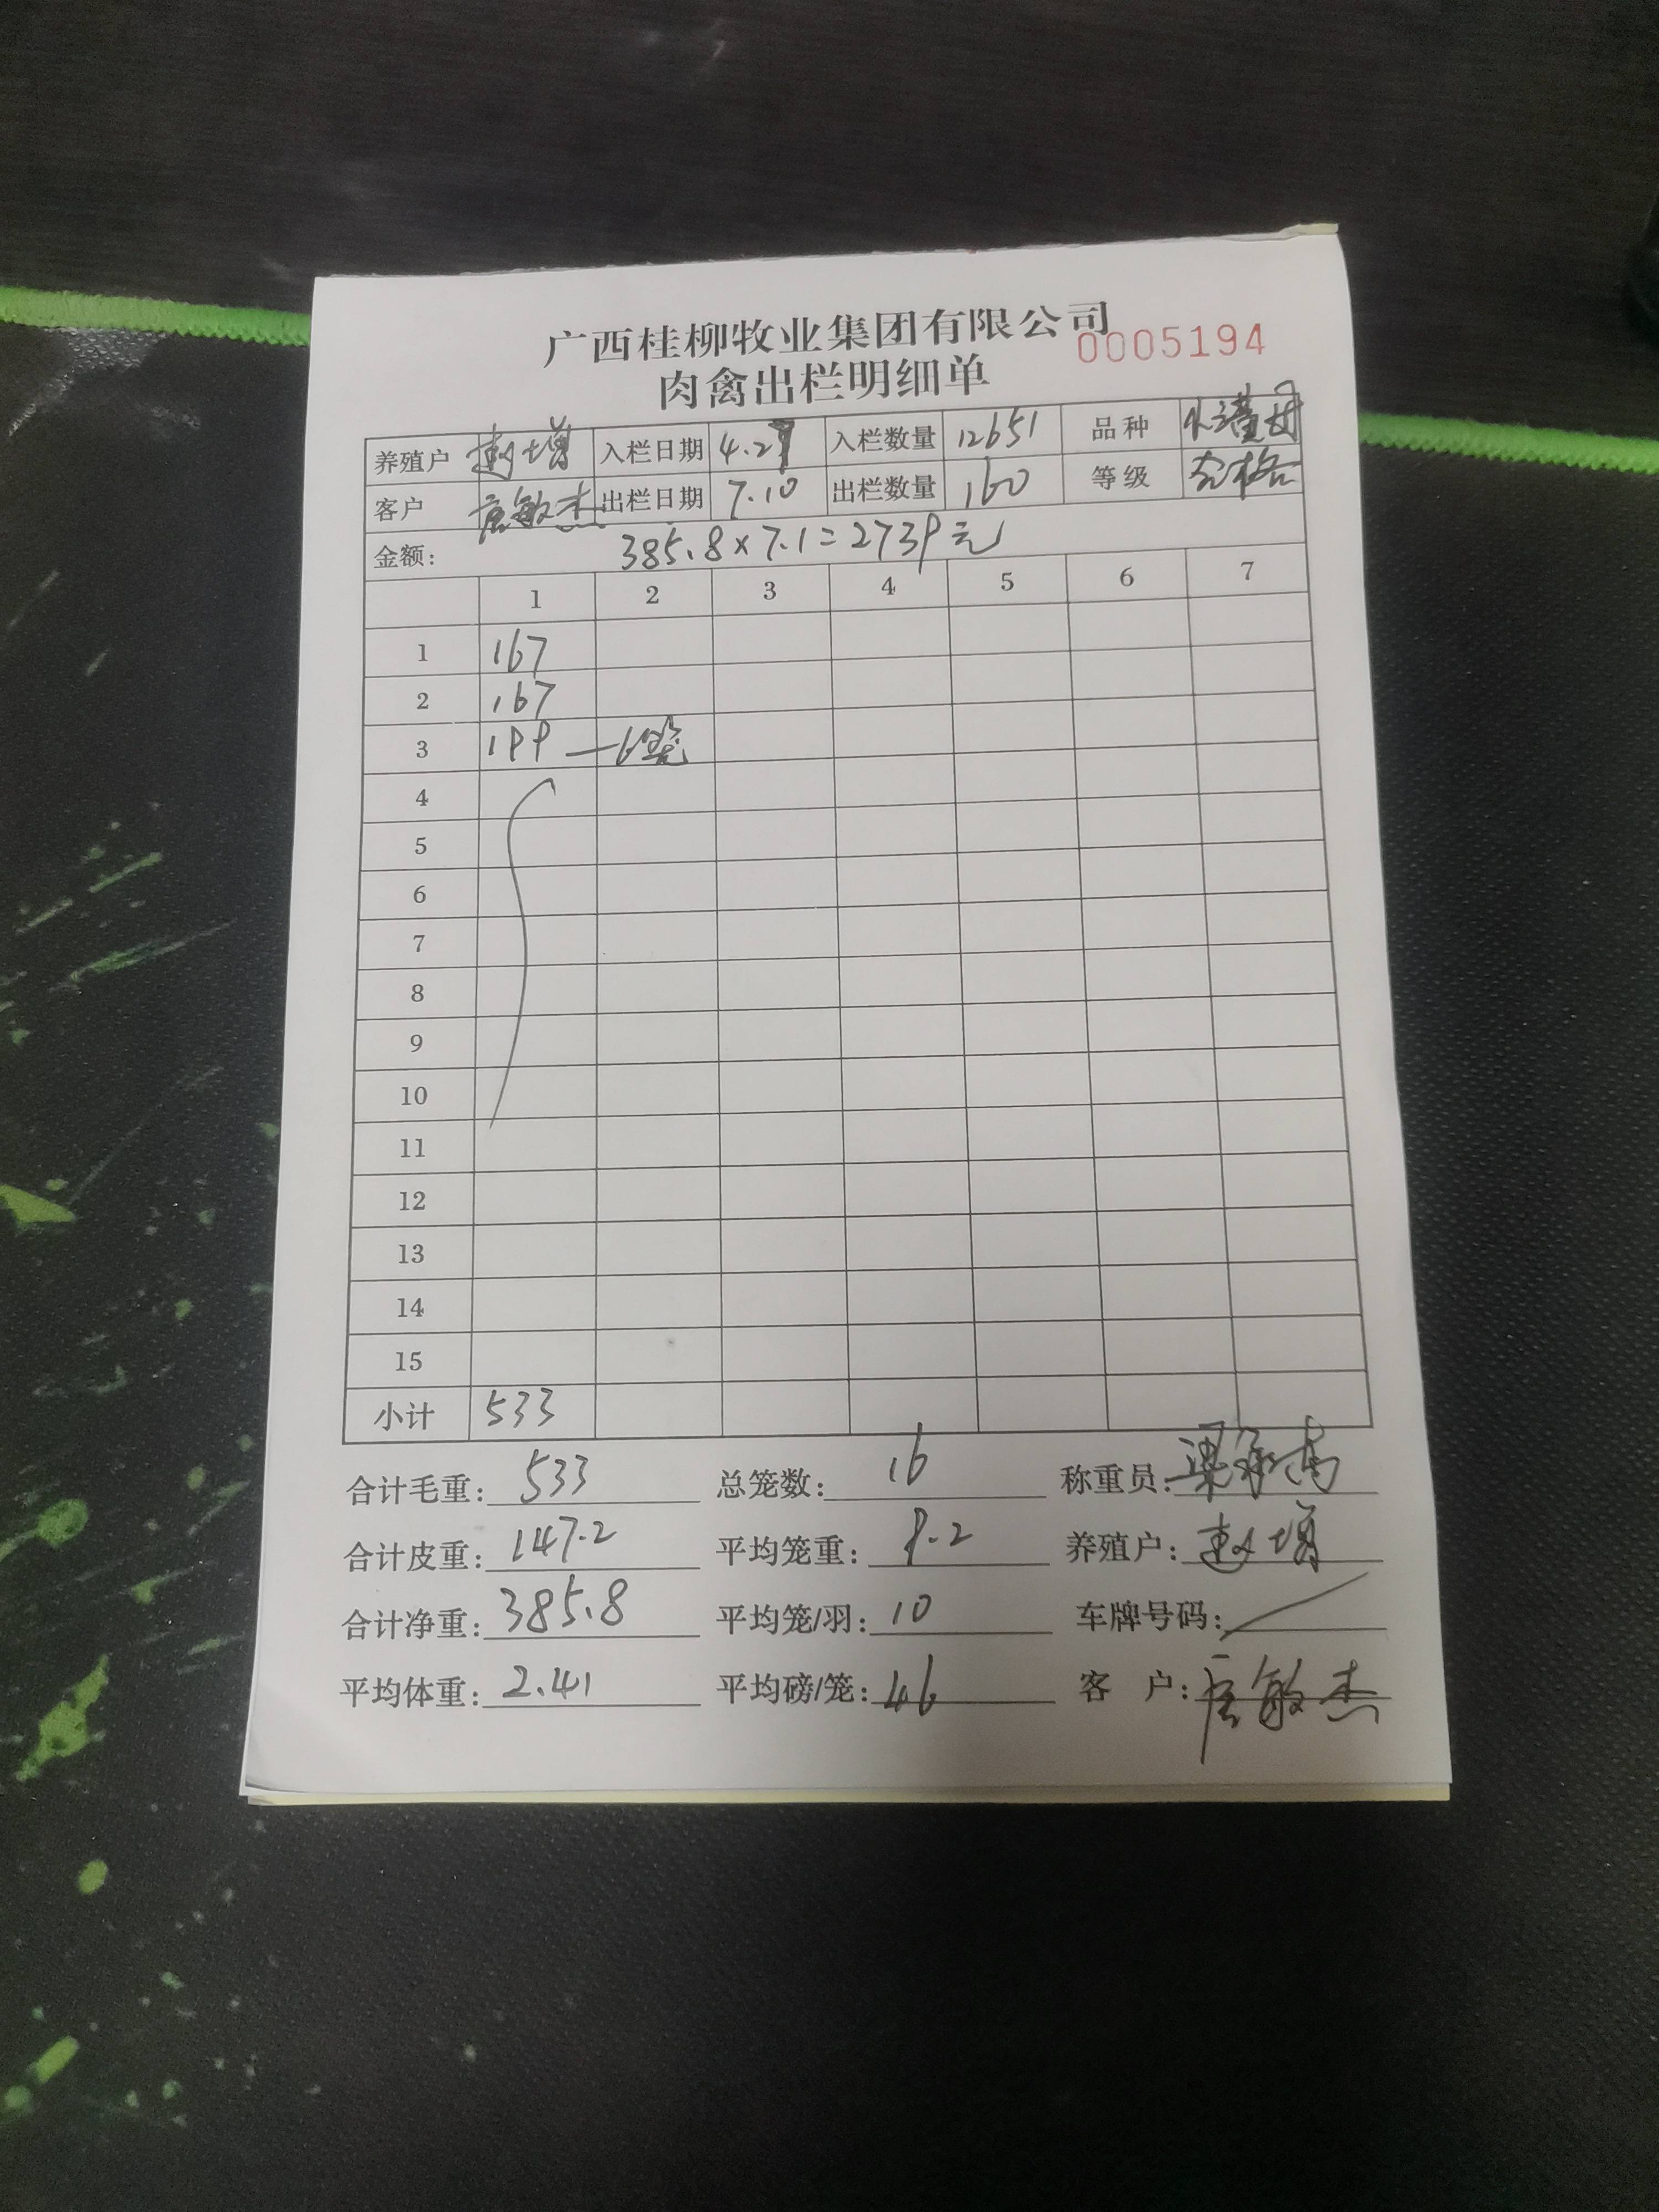 广西桂柳牧业集团有限公司
0005194
肉禽出栏明细单
养殖户 赵增 入栏日期 4.27 入栏数量 12651 品种
客户 唐敏杰 出栏日期 7.10 出栏数量 160 等级 合格
金额: 385.8×7.1=2739元
1 2 3 4 5 6 7
1 167
2 167
3 199 —6笼
4
5
6
7
8
9
10
11
12
13
14
15
小计 533
合计毛重: 533 总笼数: 16 称重员:
合计皮重: 147.2 平均笼重: 9.2 养殖户: 赵增
合计净重: 385.8 平均笼/羽: 10 车牌号码:
平均体重: 2.41 平均磅/笼: 46 客 户: 唐敏杰